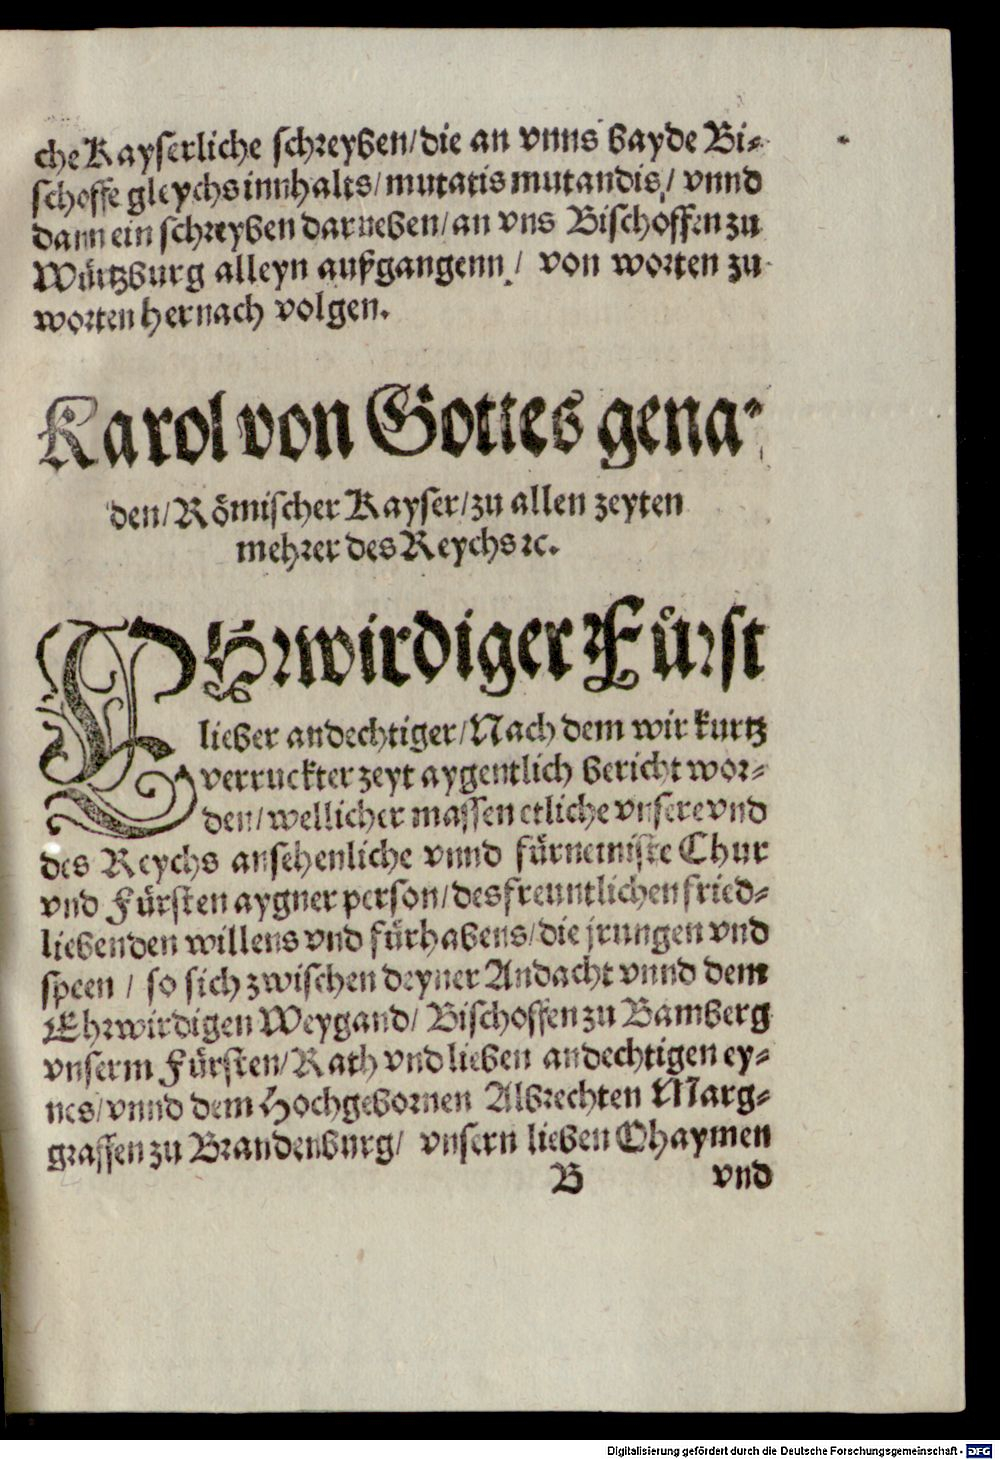 che Kayserliche schreyben/die an vnns bayde Bi-
schoffe gleychs innhalts/mutatis mutandis/ vnnd
dann ein schreyben darneben/an vns Bischoffen zu
Würtzburg alleyn außgangenn/ von worten zu
worten hernach volgen.
Karol von Gottes gena-
den/Römischer Kayser/zu allen zeyten
mehrer des Reychs ꝛc.
EHrwirdiger Fürst
lieber andechtiger/Nach dem wir kurtz
verruckter zeyt aygentlich bericht wor-
den/wellicher massen etliche vnsere vnd
des Reychs ansehenliche vnnd fürnemiste Chur
vnd Fürsten aygner person/des freuntlichen fried-
liebenden willens vnd fürhabens/die jrungen vnd
speen / so sich zwischen deyner Andacht vnnd dem
Ehrwirdigen Weygand/ Bischoffen zu Bamberg
vnserm Fürsten/Rath vnd lieben andechtigen ey-
nes/vnnd dem Hochgebornen Albrechten Marg-
graffen zu Brandenburg/ vnsern lieben Ohaymen
B vnd
Digitalisierung gefördert durch die Deutsche Forschungsgemeinschaft - DFG